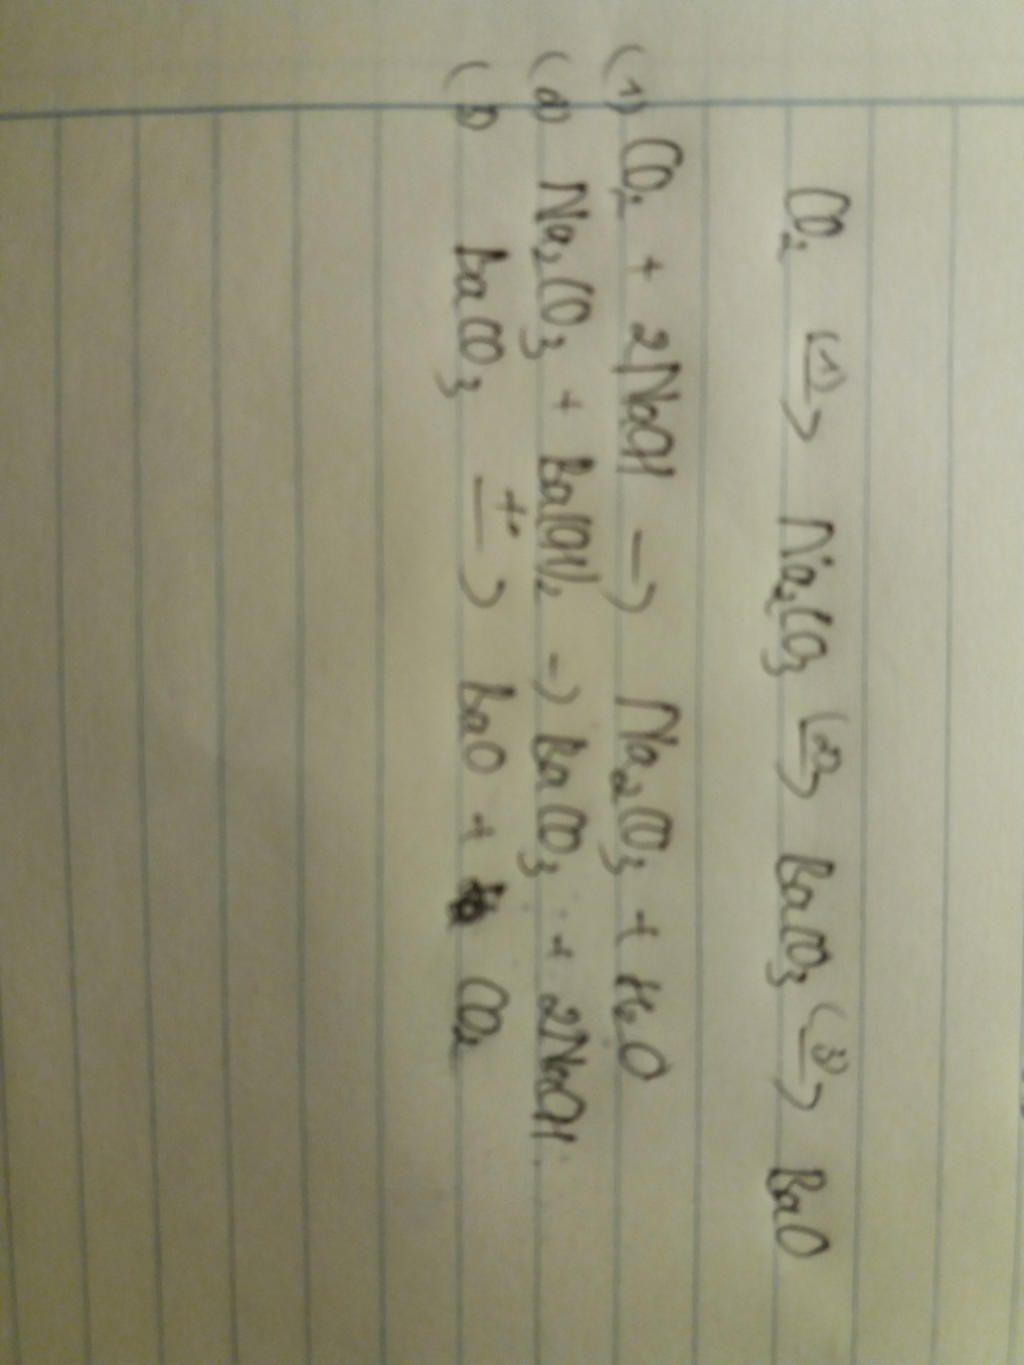 CO₂ (1)→ Na₂CO₃ (2)→ BaCO₃ (3)→ BaO
(1) CO₂ + 2NaOH → Na₂CO₃ + H₂O
(2) Na₂CO₃ + Ba(OH)₂ → BaCO₃ + 2NaOH
(3) BaCO₃ t°→ BaO + CO₂